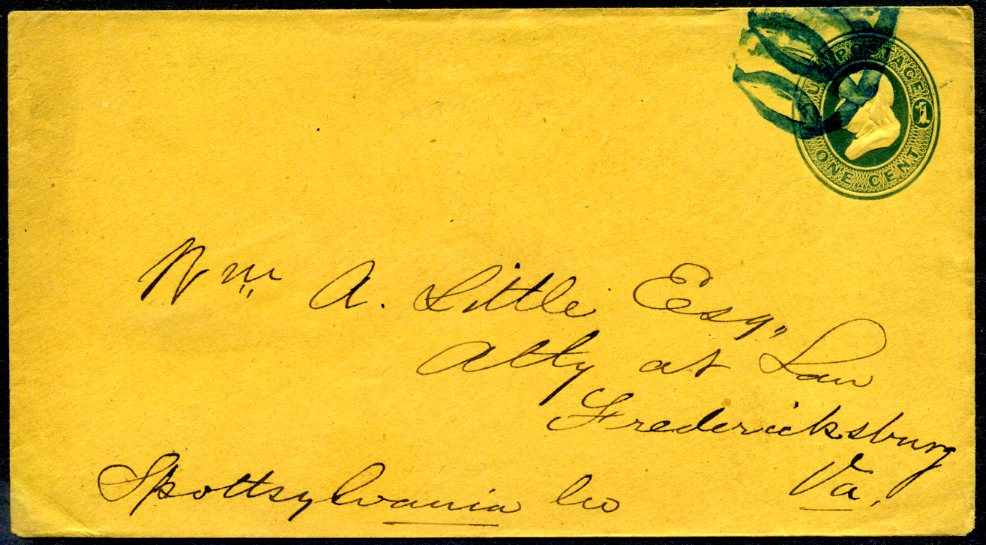 U.S. POSTAGE
1
ONE CENT
Wm. A. Little Esq.,
Atty at Law
Fredericksburg
Va.
Spottsylvania Co